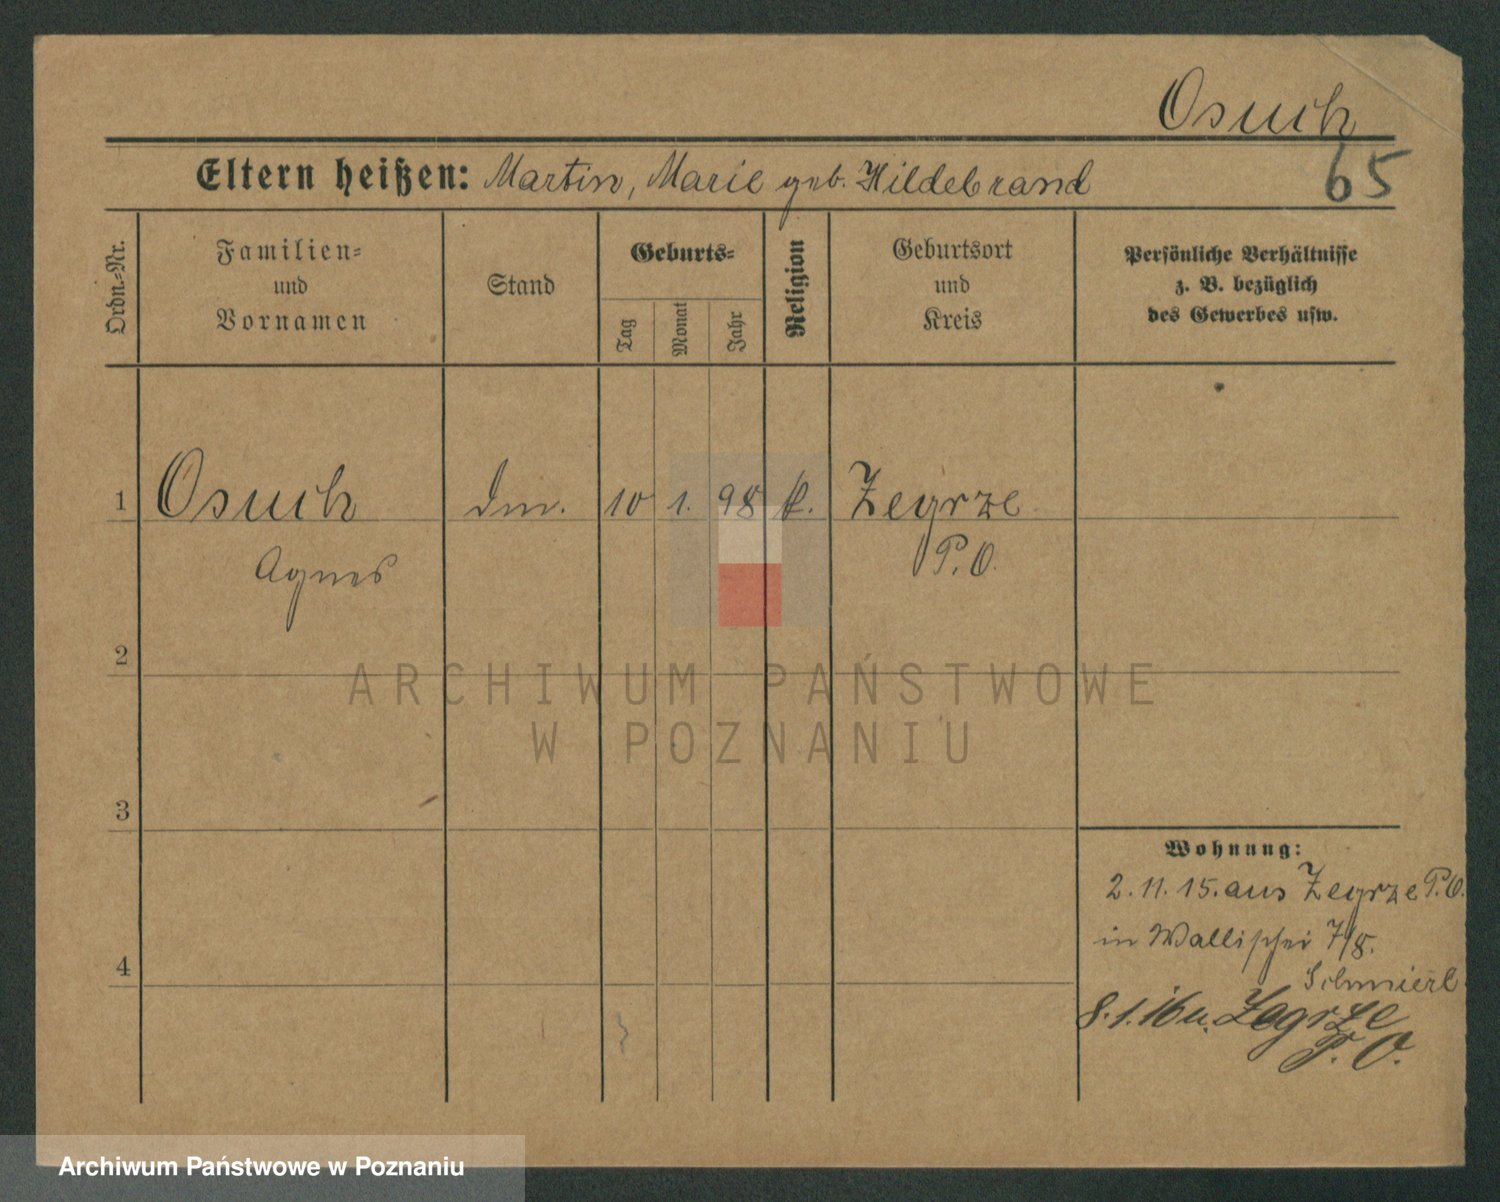 Osuch
Eltern heißen: Martin, Marie geb. Hildebrand
65
Ordn.-Nr.
Familien-
und
Vornamen
Stand
Geburts-
Tag
Monat
Jahr
Religion
Geburtsort
und
Kreis
Persönliche Verhältnisse
z. B. bezüglich
des Gewerbes usw.
1 Osuch 10 1. 98 k. Zegrze
Agnes P. O.
2
3
4
Wohnung:
2. 11. 15. aus Zegrze P. O.
in Wallischei 7/8.
8. 1. 16 n. Zegrze
P. O.
ARCHIWUM PAŃSTWOWE
W POZNANIU
Archiwum Państwowe w Poznaniu